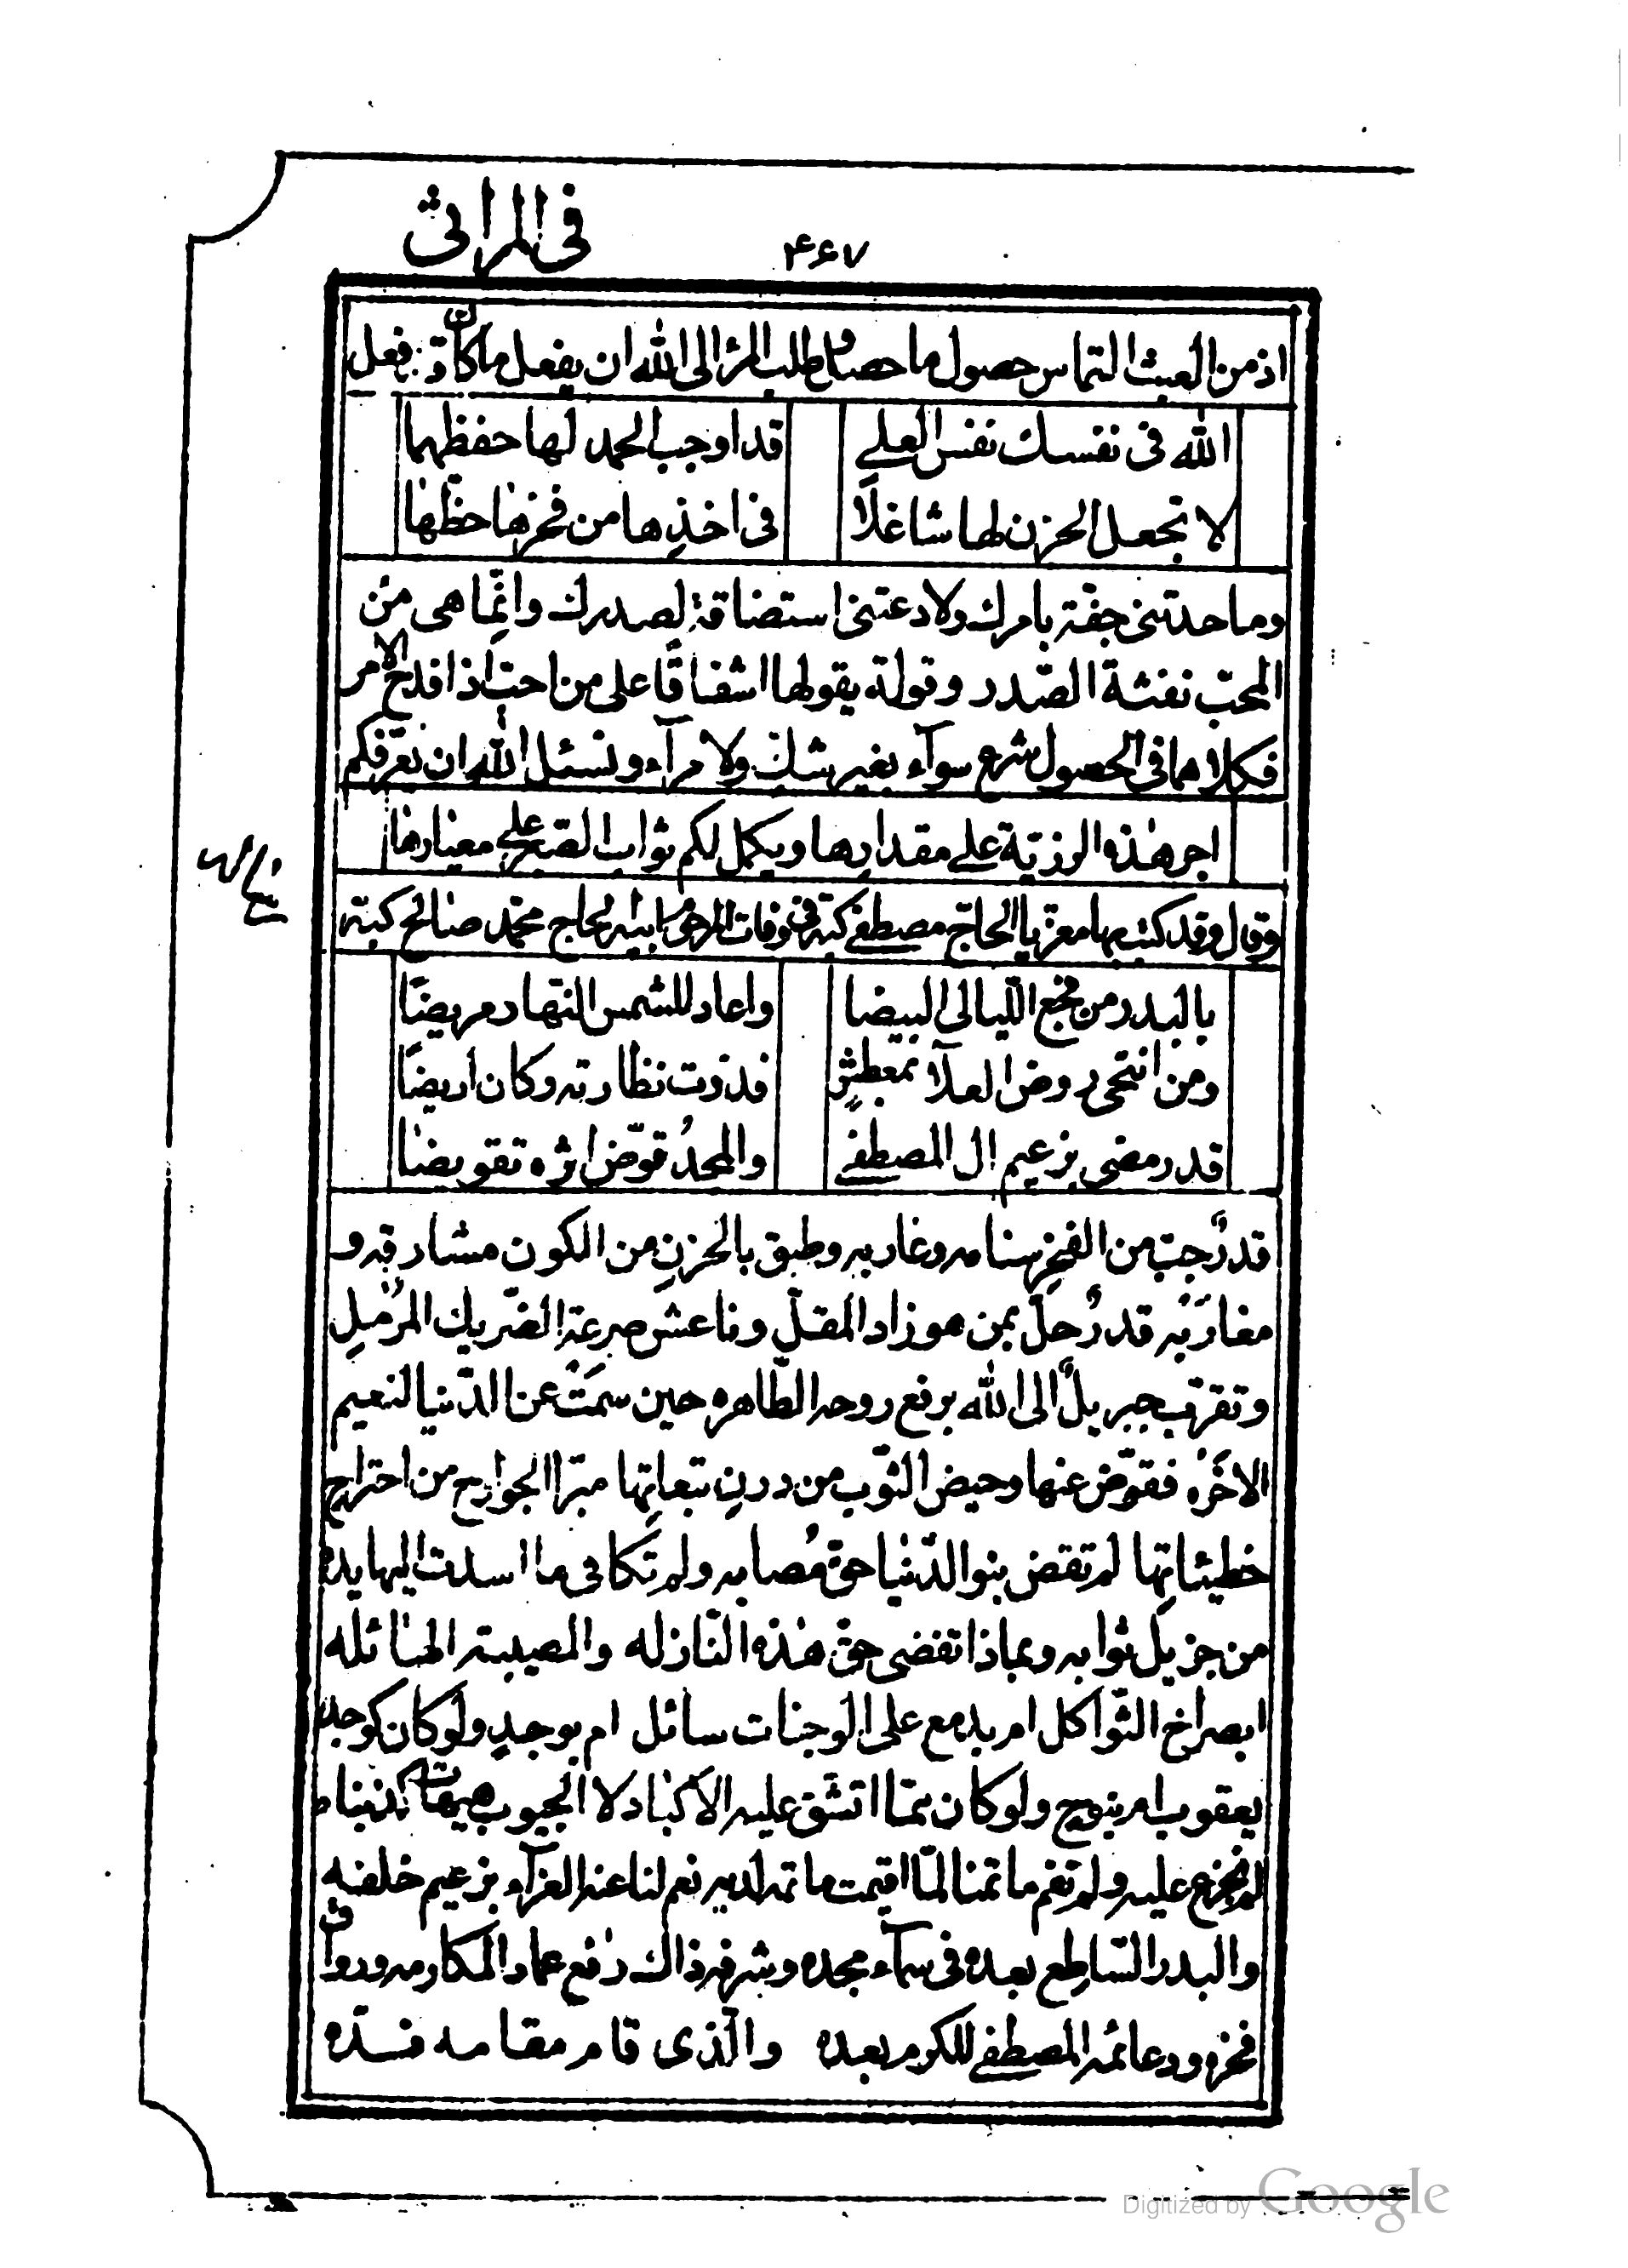 في المراثي
۴۶۷
اذ من العبث التماس حصول ما حصل طلب المرء الى الله ان يفعل ما كان قد فعل
الله فى نفسك نفس العلى قد اوجب الحمد لها حفظهما
لا تجعل الحزن لها شاغلًا فى اخذها من فخرها حظّها
وما حدتنى جفة بامرك ولا دعتنى استضاقة لصدرك وانّما هى من
المحبّ نفثة الصّدر وقولة يقولها اشفاقًا على من احبّ اذا فدح الامر
فكلاهما فى الحصول شرع سوآء بغير شك ولا مرآء ونسئل الله ان يعرفكم
اجر هذه الرزيّة على مقدارها ويكمل لكم ثواب الصبر على معيارها
وقال وقد كتب بها معزيا الحاج مصطفى كبه فى وفات المرحوم ابيه الحاج محمّد صالح كبه
بالبدر من فجع اللّيالى البيضا واعاد للشمس النهار مريضًا
ومن انتحى روض العلآ بمعطش فذوت نظارته وكان اريضًا
قد رمضى بزعيم ال المصطفى والمجدُ قوّض اثره تقويضا
قد رُجبّ من الفخر سنامه وغاربه وطبق بالحزن من الكون مشارقه و
مغاربه قد رُحلّ بمن هو زاد المقلّ وناعش صرعة الضّريك المرمل
وتقرّب جبريلُ الى الله برفع روحه الطّاهره حين سمَتْ عن الدّنيا لنعيم
الاخره فقوّض عنها وحيض الثوب من درن تبعاتها مبرّا الجوارح من اجتراح
خطيئاتها لم تقض بنو الدّنيا حقّ مُصابه ولم تكافى ما اسدت اليها يده
من جزيل ثوابه وبماذا تقضى حقّ هذه النّازله والمصيبة الهائله
ابصراخ الثّواكل ام بدمع على الوجنات سائل ام بوجد ولو كان كوجد
يعقوب ام بنوح ولو كان ممّا تشقّ عليه الاكباد لا الجيوب هيهات
لم نجزع عليه ولم نقم ماتمنا لمّا اقيمت ماتمه لديه نعم لنا عنه العزآء بزعيم خلفه
والبدر السّاطع بعده فى سمآء مجده وشرفه ذاك رفع عماد المكارم ورواق
فخره ودعائمه المصطفى للكرم بعده والّذى قام مقامه فسدّه
Digitized by Google